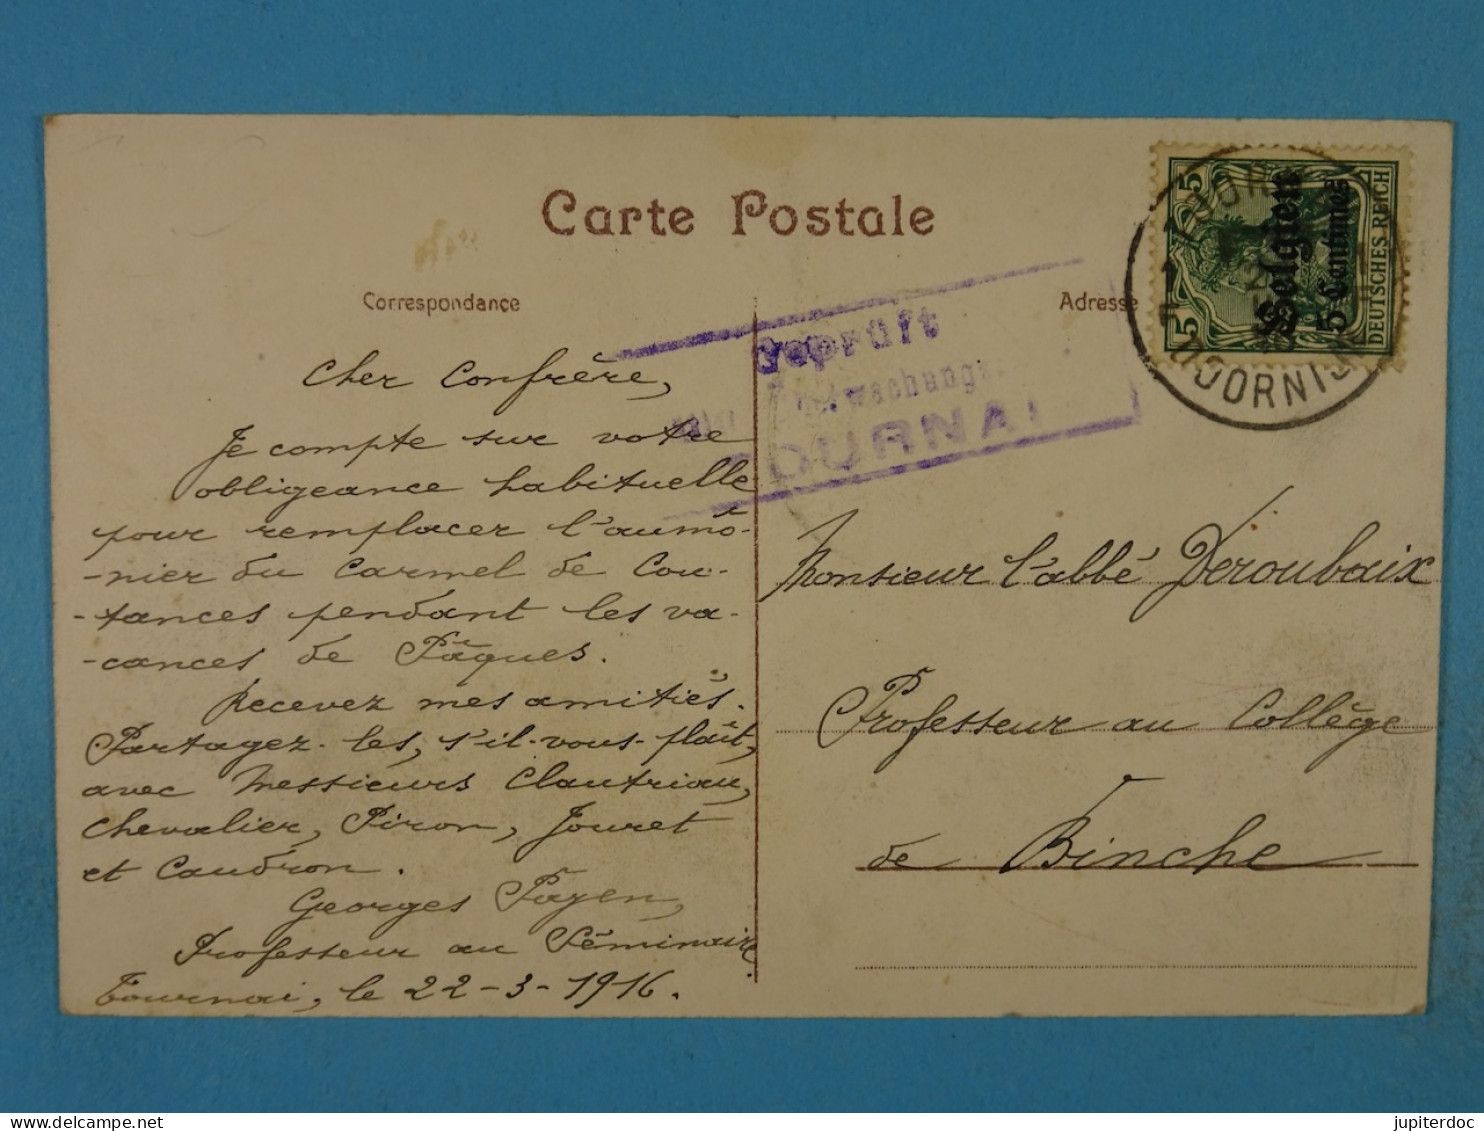 Carte Postale
Correspondance
Adresse
Cher Confrère,
Je compte sur votre
obligeance habituelle
pour remplacer l'aumô-
-nier du Carmel de Cou-
-tances pendant les va-
-cances de Pâques.
Recevez mes amitiés.
Partagez-les, s'il-vous-plaît,
avec Messieurs Clautriau,
Chevalier, Piron, Jouret
et Caudron.
Georges Payen,
Professeur au Séminaire
Tournai, le 22-3-1916.
Geprüft
TOURNAI
Belgien
5 Centimes
5
5
DEUTSCHES REICH
DOORNIJK
Monsieur l'abbé Deroubaix
Professeur au Collège
de Binche
jupiterdoc